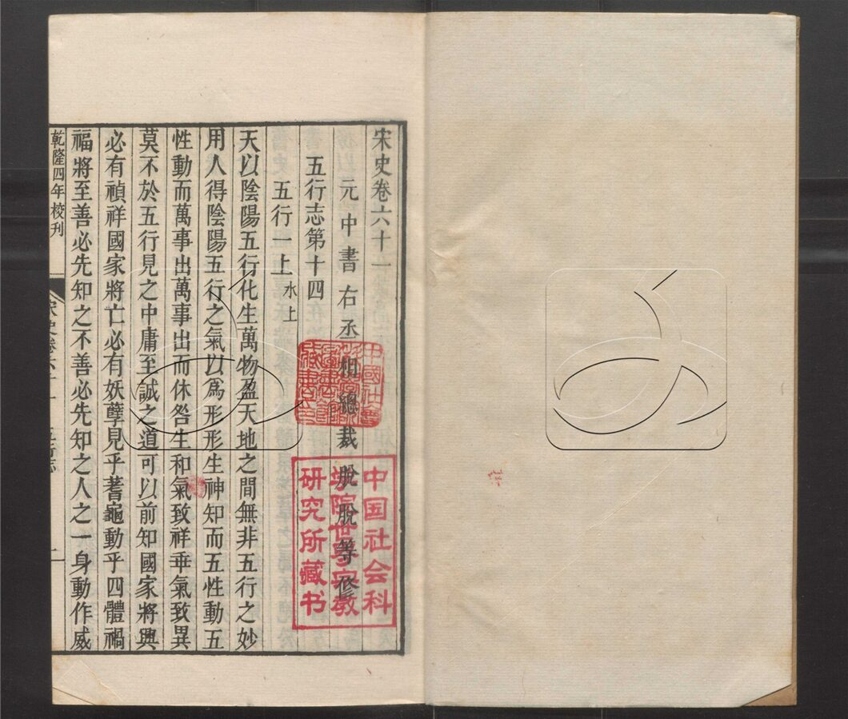 宋史卷六十一
元中書右丞相總裁脫脫等修
五行志第十四
五行一上水上
天以陰陽五行化生萬物盈天地之間無非五行之妙
用人得陰陽五行之氣以為形形生神知而五性動五
性動而萬事出萬事出而休咎生和氣致祥乖氣致異
莫不於五行見之中庸至誠之道可以前知國家將興
必有禎祥國家將亡必有妖孽見乎蓍龜動乎四體禍
福將至善必先知之不善必先知之人之一身動作威
乾隆四年校刊
宋史卷六十一 五行志 一
中国社会科
学院世界宗教
研究所藏书